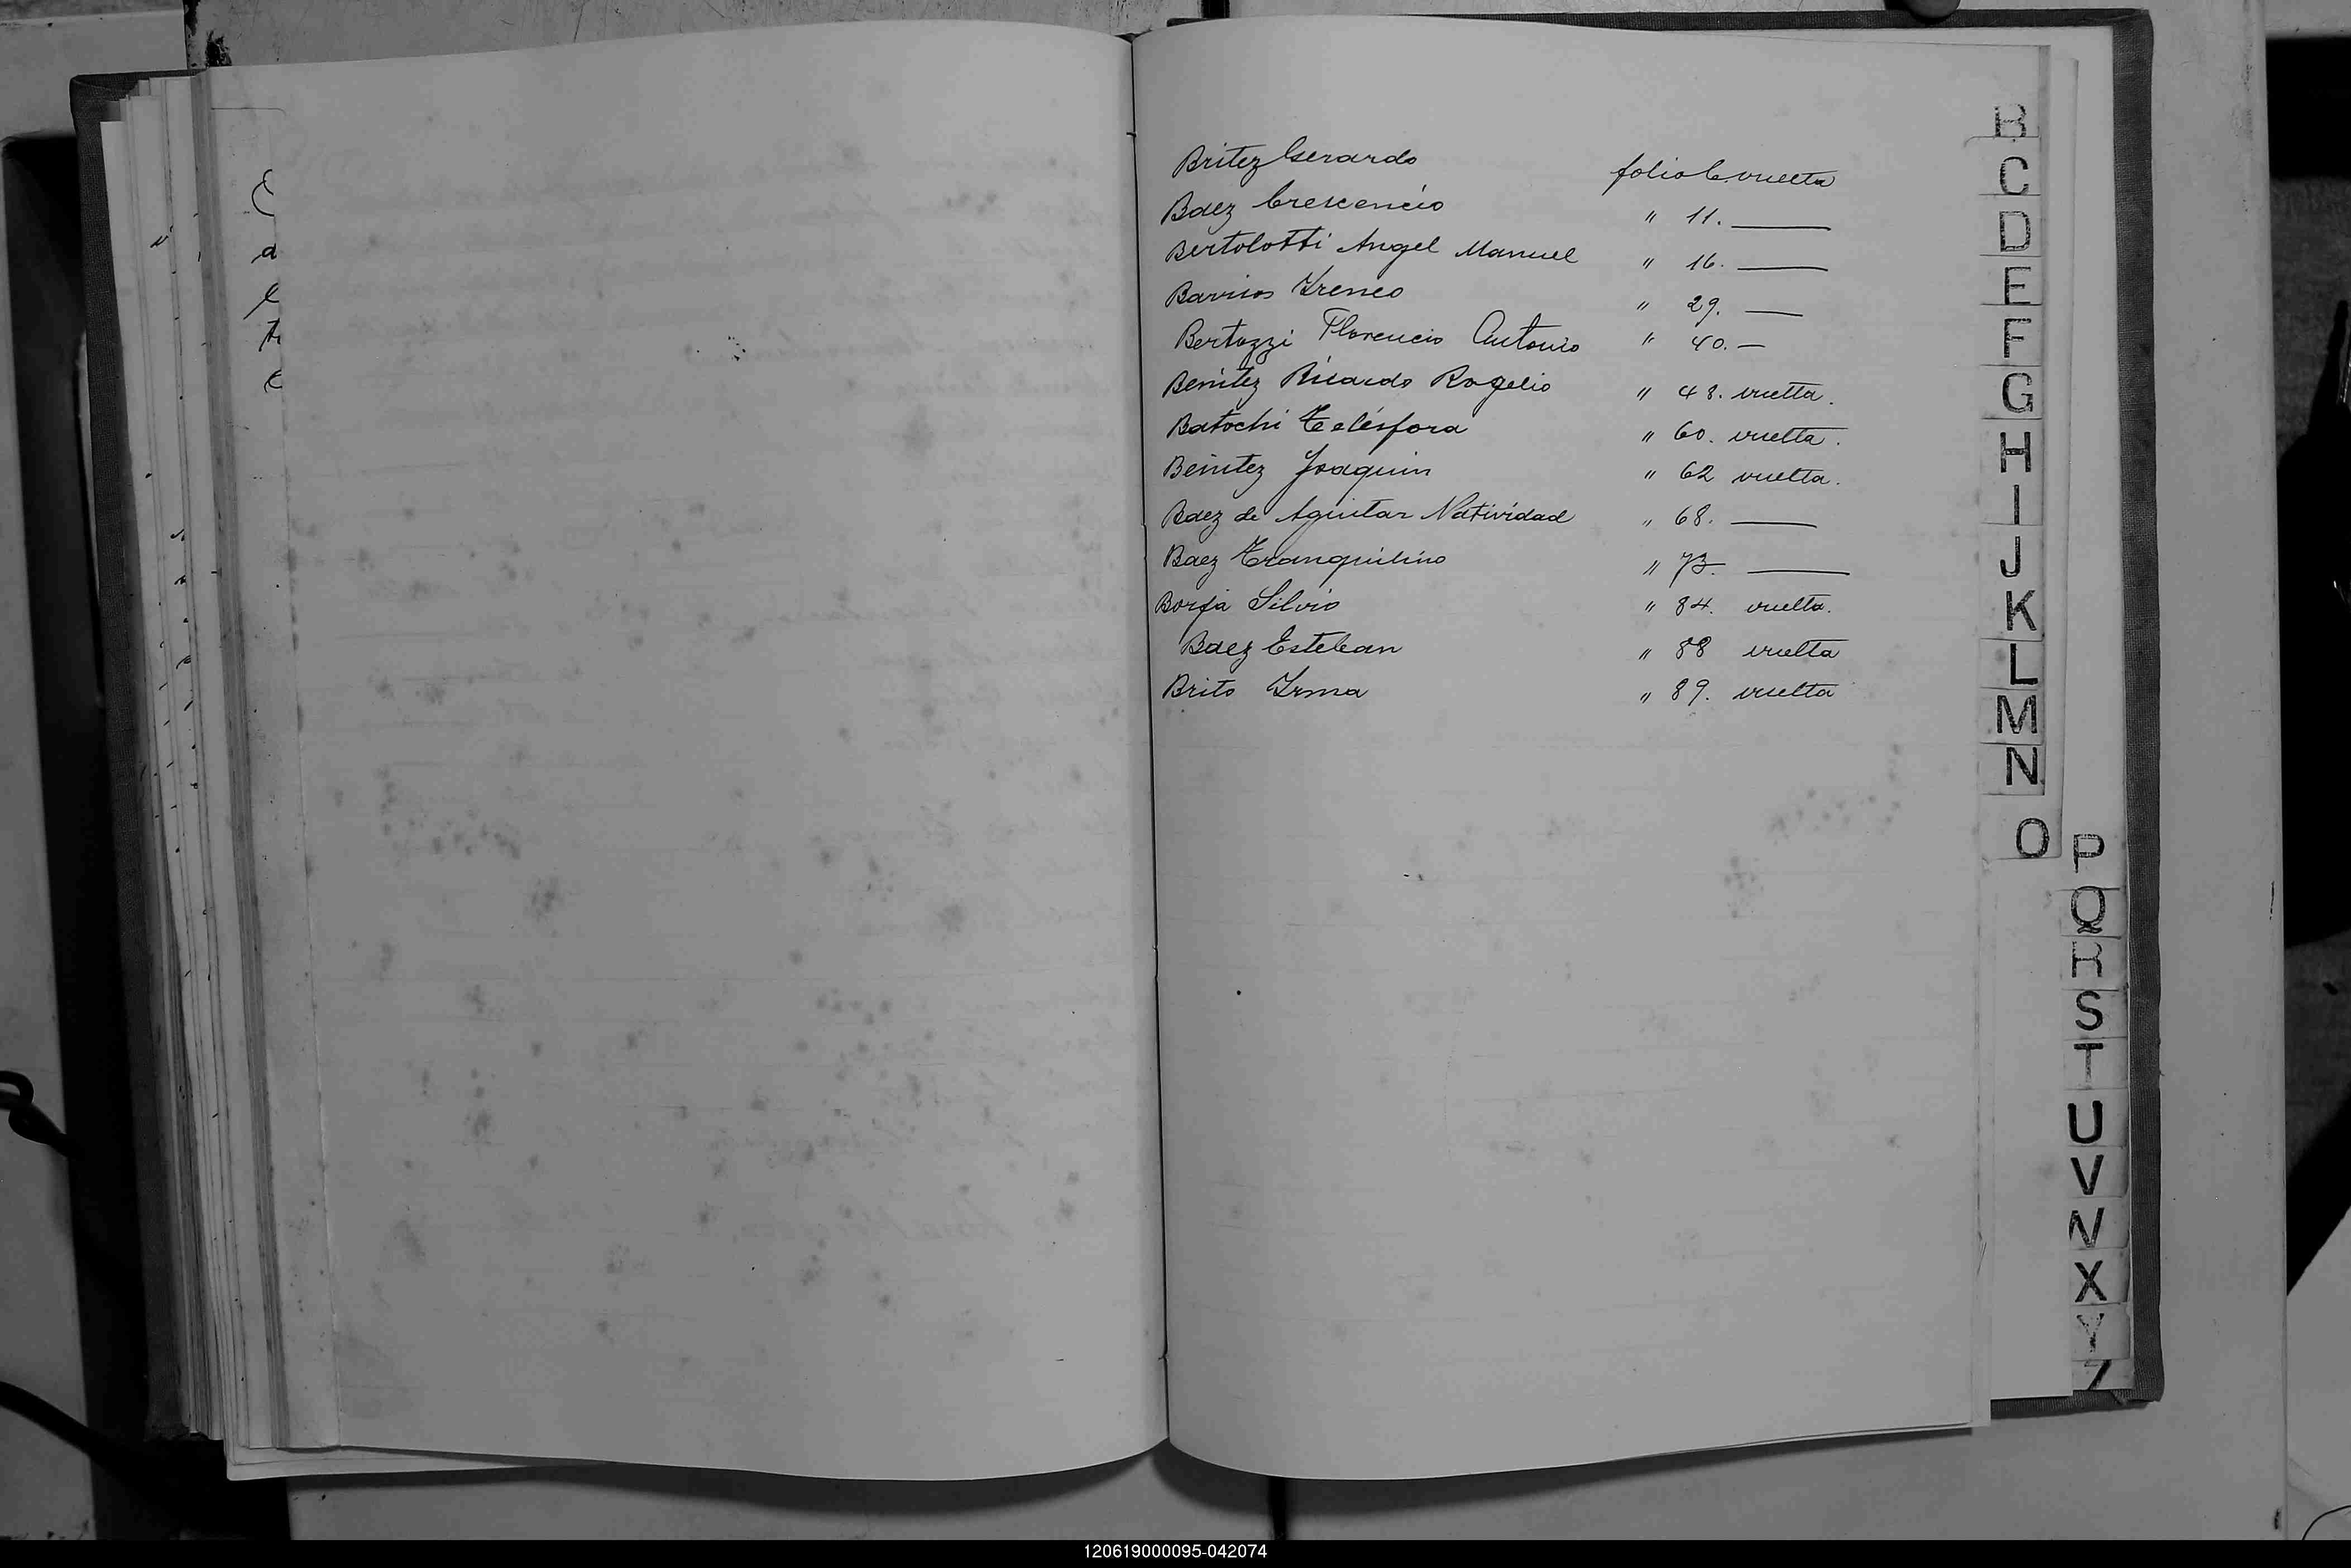 Britez Gerardo folio 6. vuelta
Baez Crescencio " 11. ―
Bertolotti Angel Manuel " 16. ―
Barrios Ireneo " 29. ―
Bertozzi Florencio Antonio " 40. ―
Benitez Ricardo Rogelio " 48. vuelta.
Batochi Telésfora " 60. vuelta.
Benitez Joaquin " 62 vuelta.
Baez de Aguilar Natividad " 68. ―
Baez Tranquilino " 73. ―
Borja Silvio " 84. vuelta.
Baez Esteban " 88 vuelta
Brito Irma " 89. vuelta
B
C
D
E
F
G
H
I
J
K
L
M
N
O
P
Q
R
S
T
U
V
W
X
Y
Z
120619000095-042074